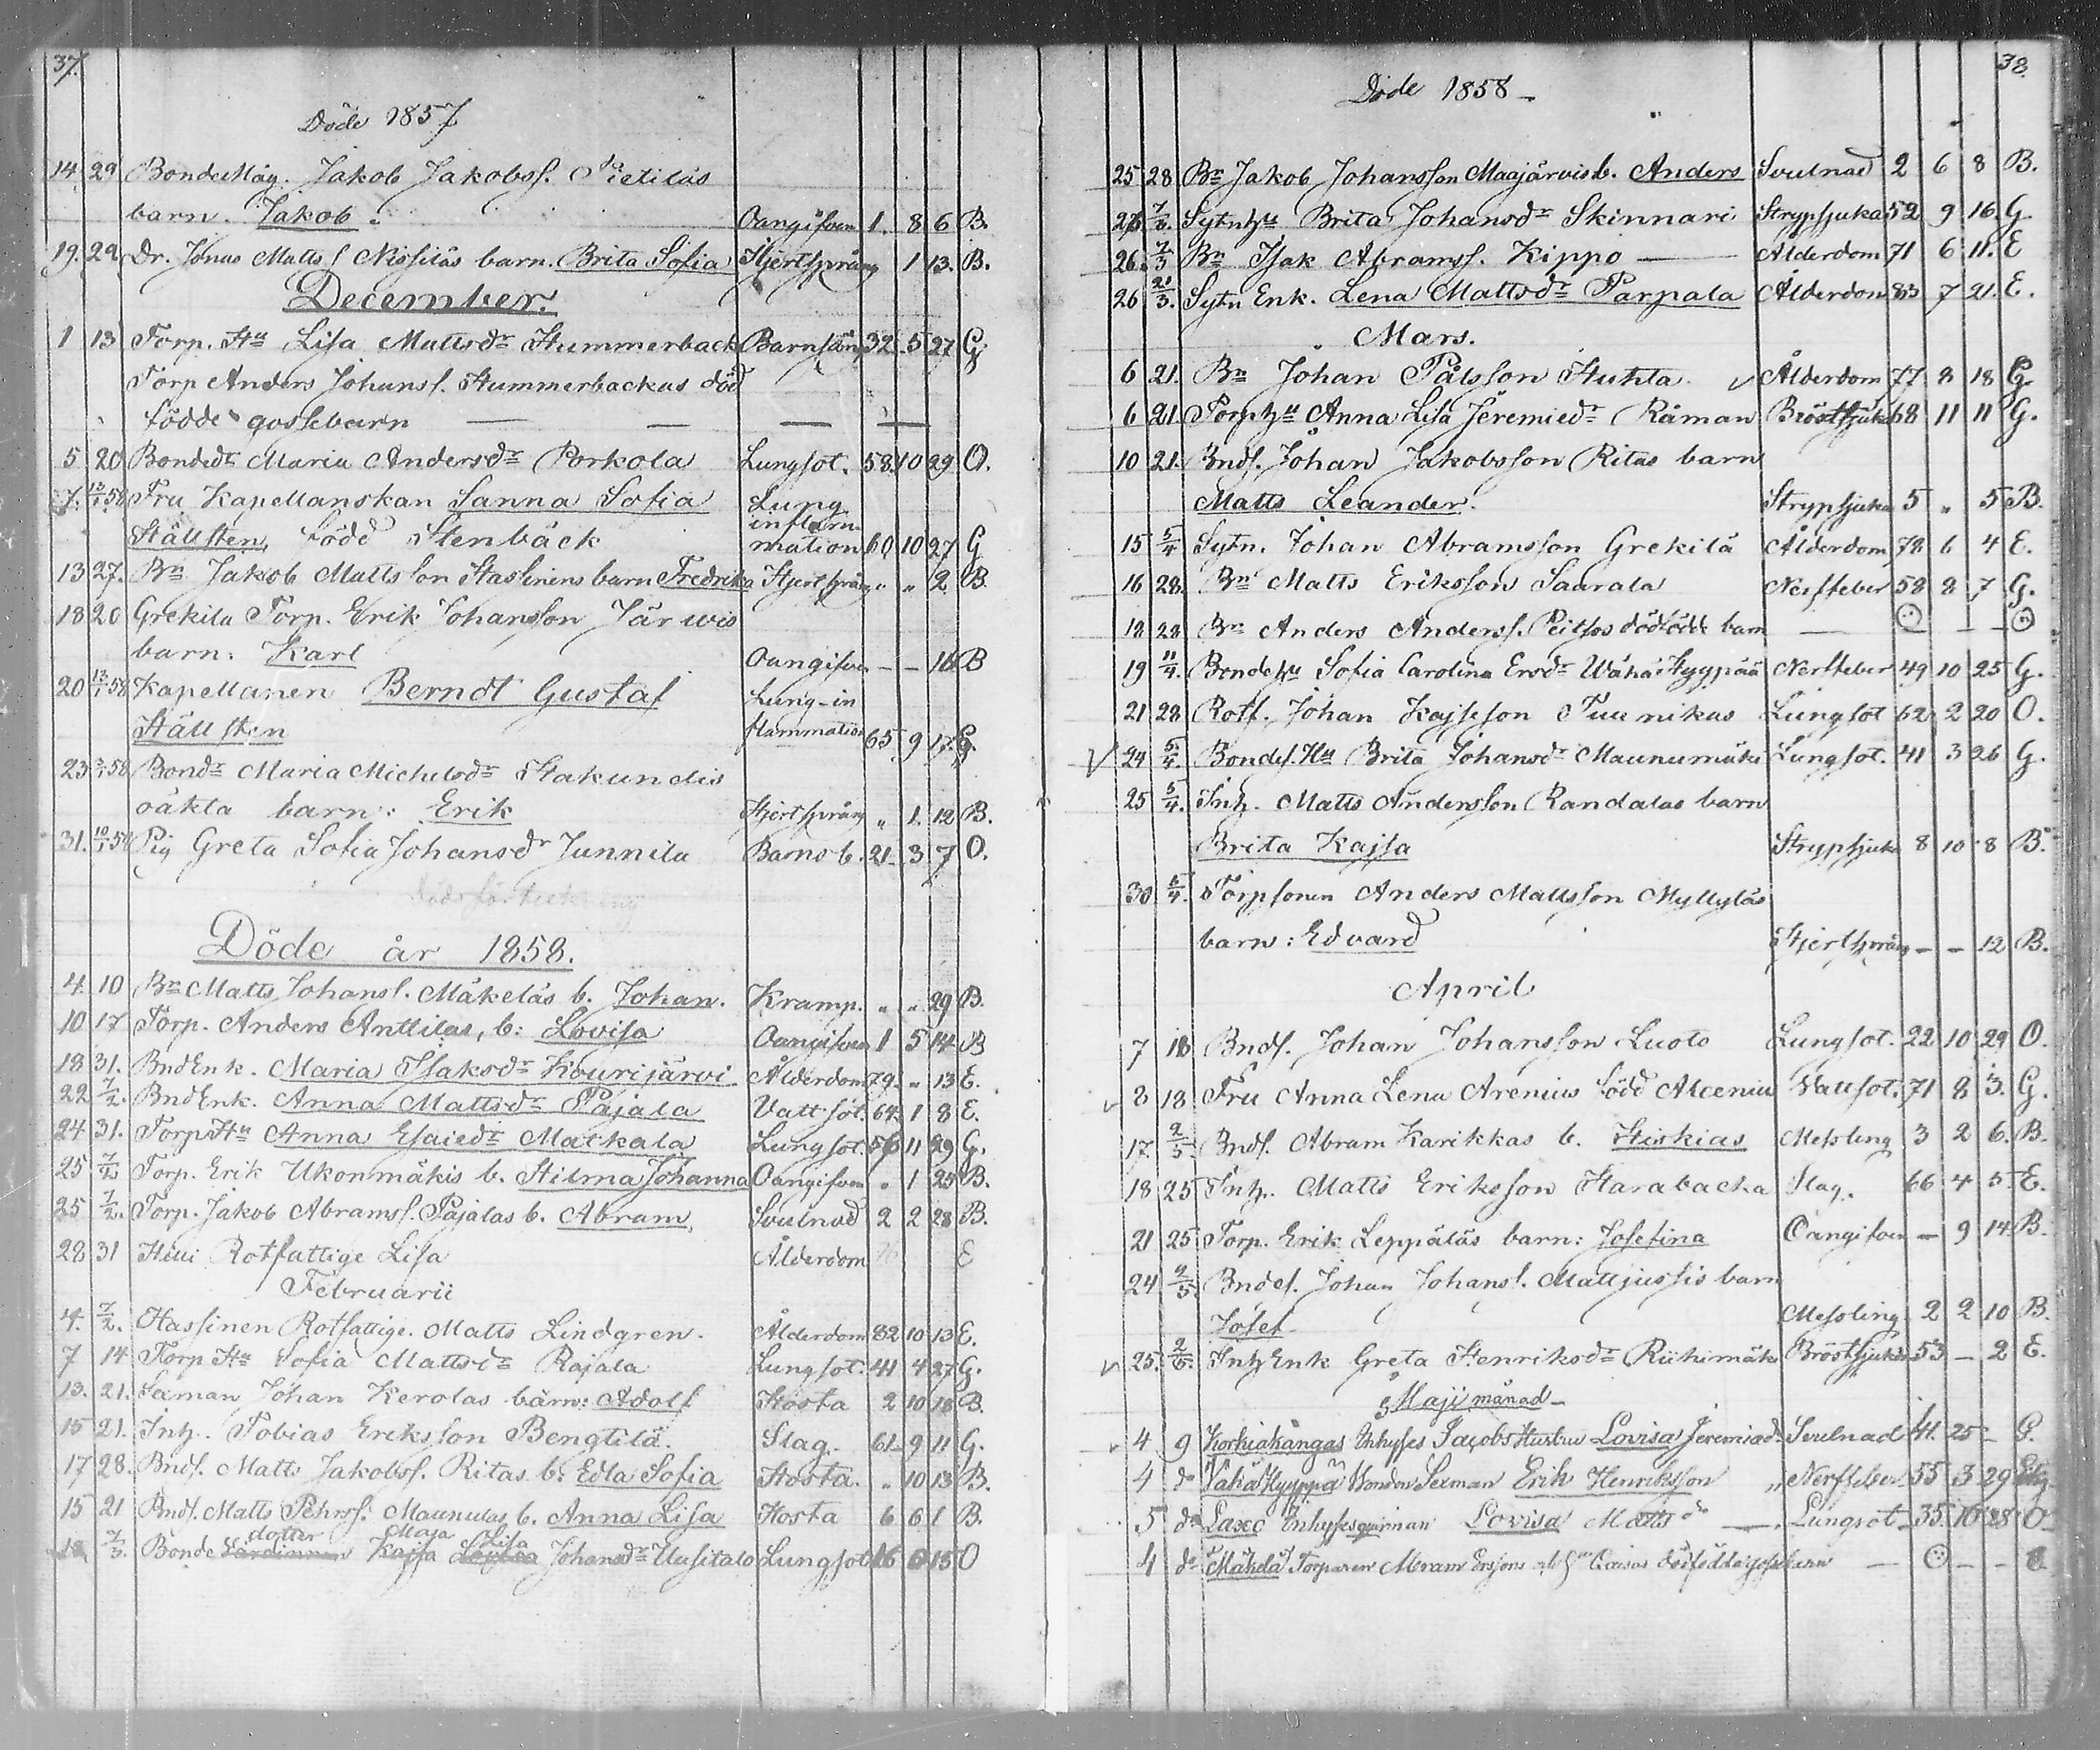 37.
Döde 1857
14. 29 BondeMåg. Jakob Jakobss. Pietiläs
barn. Jakob. Oangifven 1. 8 6 B.
19. 29. Dr. Jonas Matts s Nissiläs barn. Brita Sofia Hjertsprång 1 13. B.
December.
1 13 Torp. Hu Lisa Mattsdr Hummerback Barnsäng 32 5 27 G
Torp Anders Johanss. Hummerbackas död
födde gossebarn — — — —
5 20 Bondedr Maria Andersdr Porkola Lungsot. 58 10 29 O.
7. 13/1 58 Fru Kapellanskan Sanna Sofia Lung
inflam
Hällsten, född Stenbäck mation 60 10 27 G
13 27. Bn Jakob Mattsson Hasinens barn Fredrika Hjertsprång " " 2 B
18 20 Grekila Torp. Erik Johansson Järwis
barn: Karl Oangifven — — 16 B
20 13/1 58 Kapellanen Berndt Gustaf Lung-in
Hällsten flammation 65 9 17. G.
23 3/1 58 Bondr Maria Michelsdr Hakundis
oäkta barn: Erik Hjertsprång " 1. 12 B.
31. 10/1 58 Pig Greta Sofia Johansdr Junnila Barnsb. 21 3 7 O.
Döde år 1858.
4. 10 Bn Matts Johanss. Mäkeläs b. Johan. Kramp. " " 29 B.
10 17 Torp. Anders Anttilas, b: Lovisa Oangifven 1 5 14 B
18 31. BndEnk. Maria Isaksdr Kourijärvi Ålderdom 79. " 13 E.
22 7/2. BndEnk. Anna Mattsdr Pajala Vattsot. 64. 1 8 E.
24 31. TorpHu Anna Esaiedr Matkala Lungsot. 56 11 29 G.
25 7/2 Torp. Erik Ukonmäkis b. Hilma Johanna Oangifven " 1 25 B.
25 7/2. Torp. Jakob Abramss. Pajalas b. Abram, Svulnad 2 2 28 B.
28 31 Rotfattige Lisa Ålderdom E
Februarii
4. 7/2. Hassinen Rotfattige. Matts Lindgren. Ålderdom 82 10 13 E.
7 14 Torp Hu Sofia Mattsdr Rajala Lungsot. 41 4 27 G.
13. 21. Sexman Johan Kerolas barn: Adolf Hosta 2 10 16 B.
15 21. Inh. Tobias Eriksson Bengtilä. Slag. 61 9 11 G.
17 28. Bnds. Matts Jakobss. Ritas b. Edla Sofia Hosta. " 10 13 B.
15 21 Bnds. Matts Pehrss. Maunulas b. Anna Lisa Hosta 6 6 1 B.
dotter Maja Lisa
18 7/3. Bonde Kajsa Johansdr Uusitalo Lungsot 16 6 15 O
38.
Döde 1858 —
25 28 Bn Jakob Johansson Maajärvis b. Anders Svulnad 2 6 8 B.
26 7/3. Sytnhu Brita Johansdr Skinnari Strypsjuka 52 9 16. G.
26. 7/3 Bn Isak Abramss. Kippo — Ålderdom 71 6 11. E
26 21/3. Sytn Enk. Lena Mattsdr Parpala Ålderdom 83 7 21. E.
Mars.
6 21. Bn Johan Pålsson Huhta. Ålderdom 77 8 18 G.
6 21. Torphu Anna Lisa Jeremiedr Råman Bröstsjuka 68 11 11 G.
10 21. Bnds. Johan Jakobsson Ritas barn
Matts Leander. Strypsjuka 5 " 5 B.
15 5/4 Sytn. Johan Abramsson Grekilä Ålderdom 78 6 4 E.
16 28. Bn Matts Eriksson Saarala Nerffeber 58 8 7 G.
18 28 Bn Anders Anderss. Peitsos dödfödde barn — — —
19 11/4. Bondehu Sofia Carolina Ersdr Wähä Hyypää Nerffeber 49 10 25 G.
21 28 Rotf. Johan Kajsson Tuunikas Lungsot 62 2 20 O.
√ 24 5/4. Bondes. Hu Brita Johansdr Maunumäki Lungsot. 41 3 26 G.
25 5/4. Inh. Matts Andersson Randalas barn
Brita Kajsa Strypsjuka 8 10 8 B.
30 5/4. Torpsonen Anders Mattsson Myllyläs
barn: Edvard Hjertsprång — — 12 B.
April
7 18 Bnds. Johan Johansson Luoto Lungsot. 22 10 29 O.
8 18 Fru Anna Lena Arenius född Alcenius Vattsot. 71 8 3. G.
17 2/5 Bnds. Abram Karikkas b. Hiskias Messling 3 2 6. B.
18 25 Inh. Matts Eriksson Harabacka Slag. 66 4 5. E.
21 25 Torp. Erik Leppäläs barn: Josefina Oangifven — 9 14. B.
24 2/5. Bndes. Johan Johanss. Mattjussis barn
Josef Messling 2 2 10 B.
√ 25. 2/5. InhEnk Greta Henriksdr Riihimäki Bröstsjukdom 53 — 2 E.
Maji månad —
4 9 Korkiakangas Inhyses Jacobs Hustru Lovisa Jeremiædr Svulnad 41. 25 — G.
4 do Vähä Hyyppä Bonden Sexman Erik Henriksson Nerffeber 55 3 29
5 do Laxo Inhysesqvinnan Lovisa Matts do — Lungsot — 35 10 28 O
4 do Mäkelä Torparen Abram Ersons dödfödda gossebarn — — —